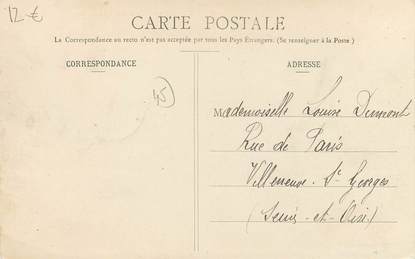 12 €
CARTE POSTALE
La Correspondance au recto n'est pas acceptée par tous les Pays Étrangers. (Se renseigner à la Poste)
CORRESPONDANCE
ADRESSE
45
Mademoiselle Louise Dumont
Rue de Paris
Villeneuve-St Georges
(Seine-et-Oise)